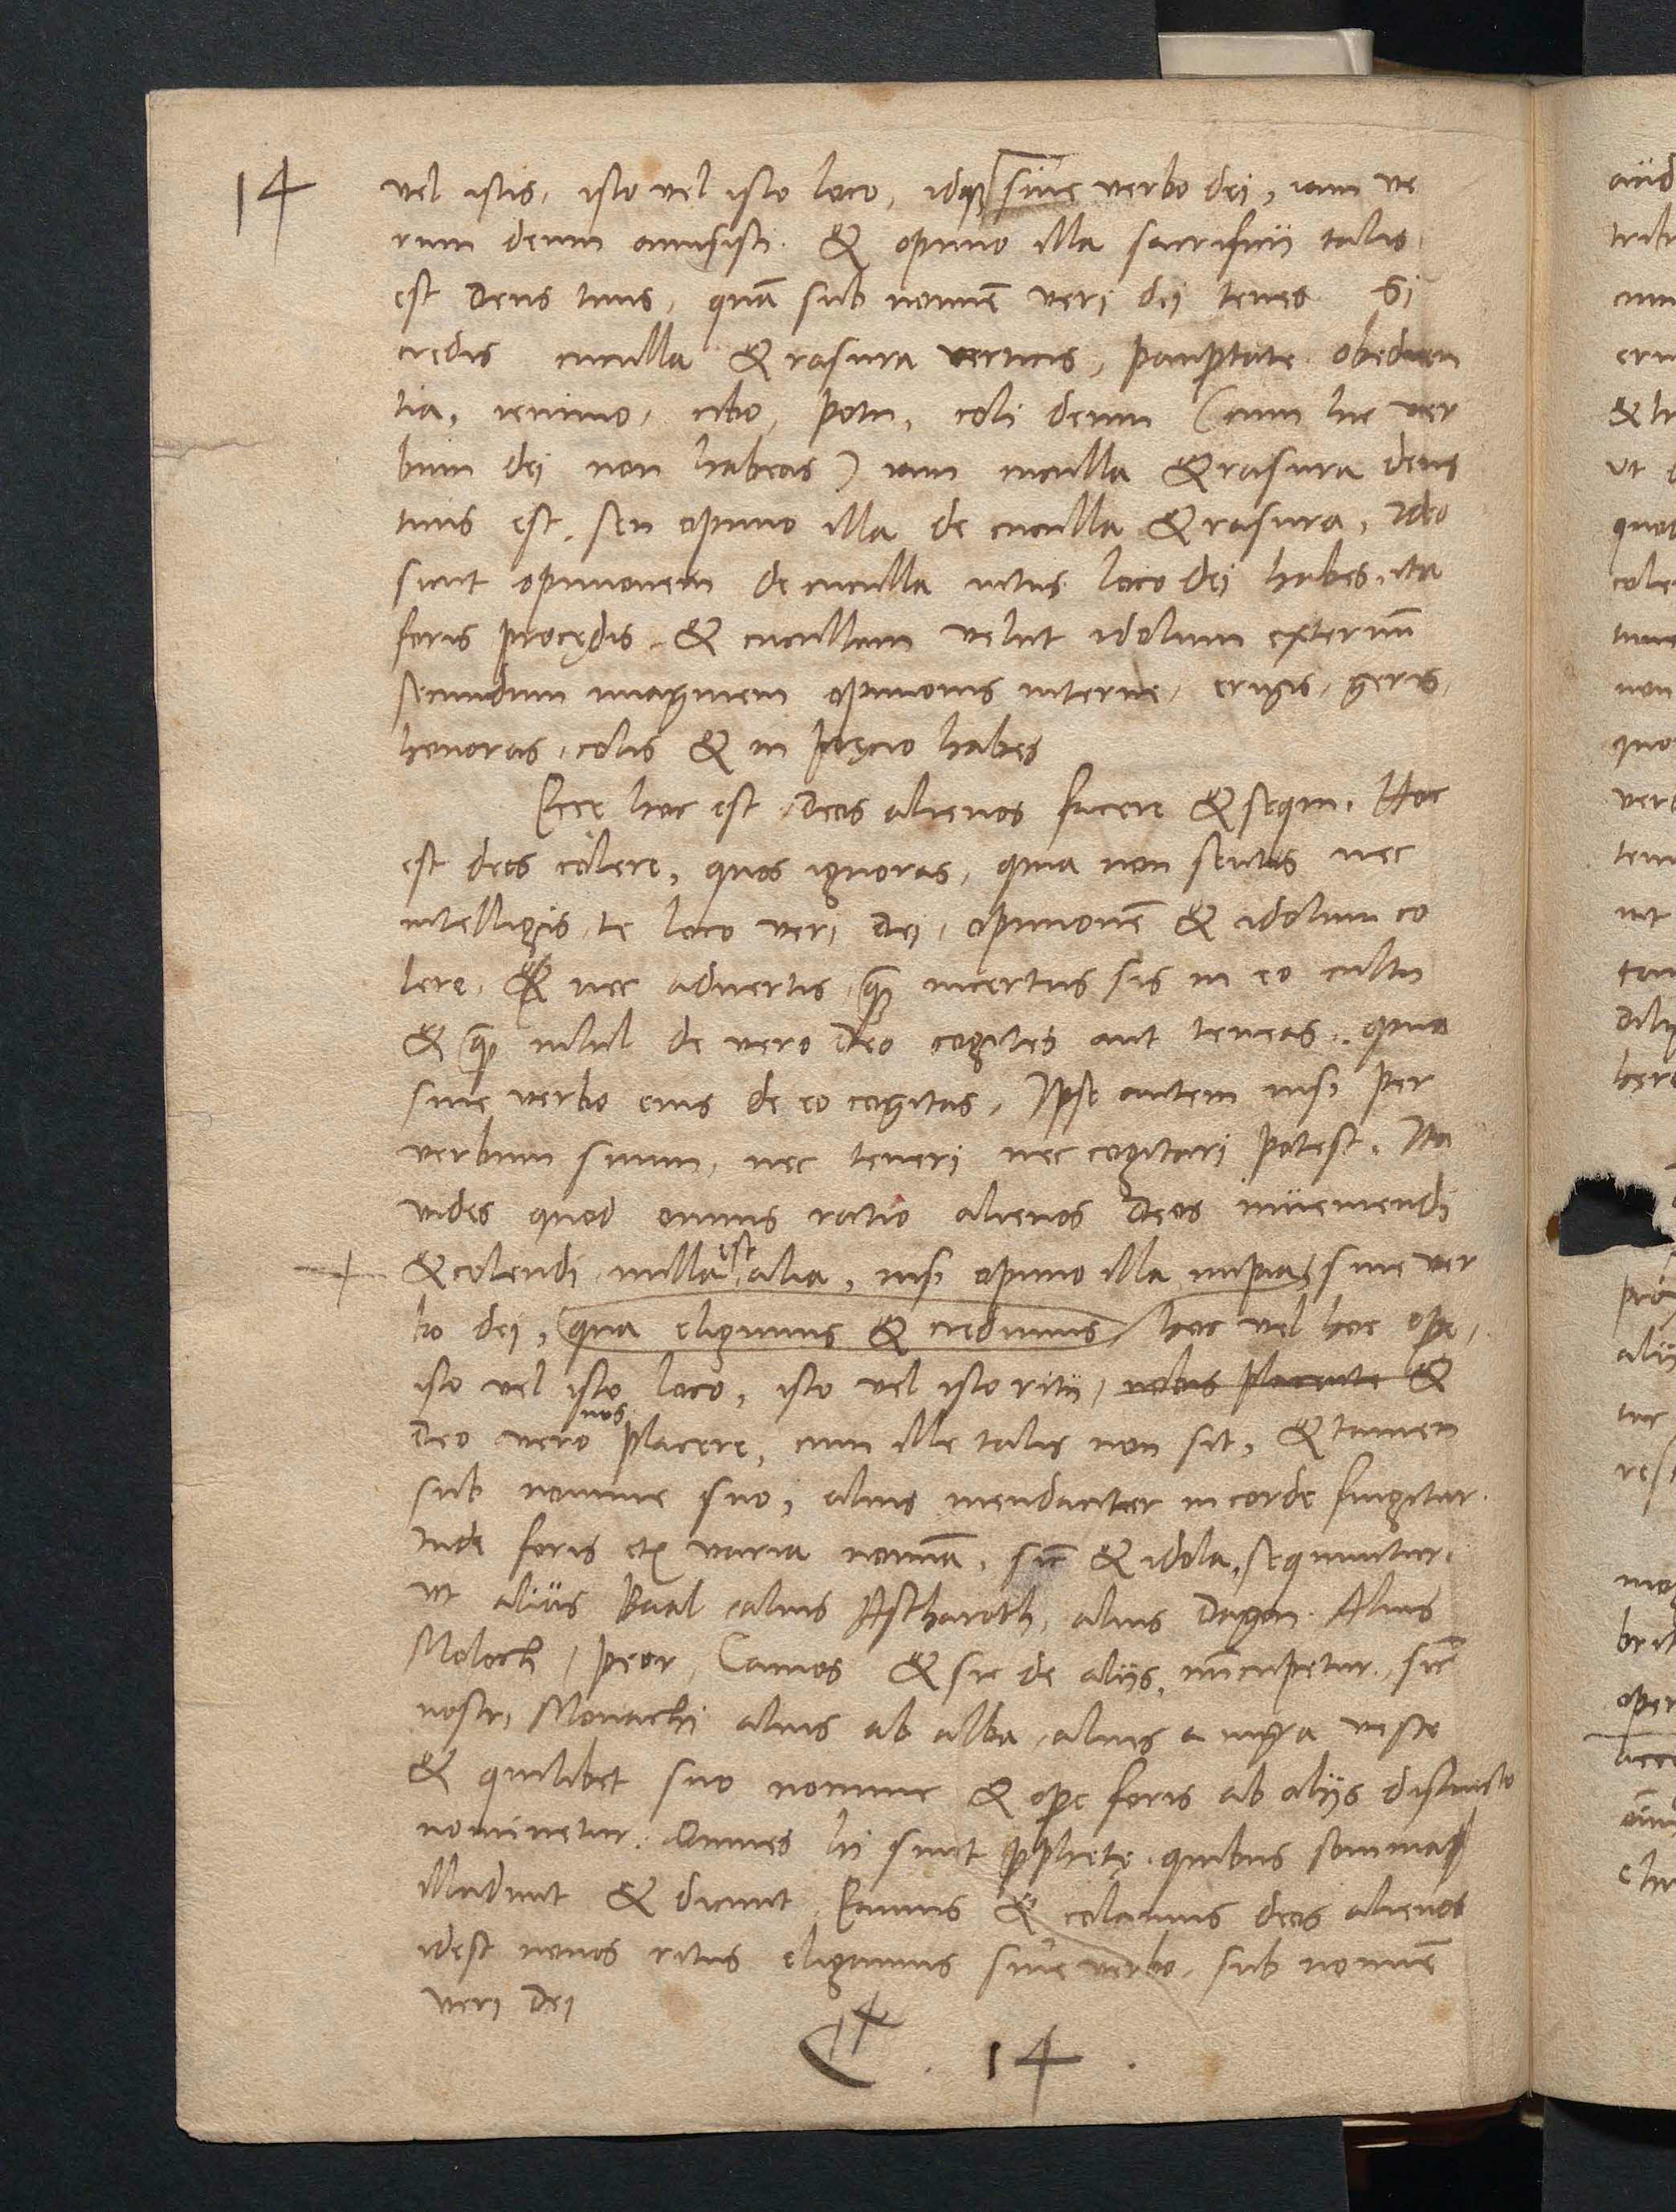 14
vel istis, isto vel isto loco, idqꝫ sine verbo dei, iam ve
rum deum amisisti. & opinio illa sacrificii talis
est deus tuus, quā sub nomīe veri dei tenes Si
credis cuculla & rasura verticis, paup̱tate obedien
tia, ieiunio, cibo, potu, coli deum (cum hic ver
bum dei non habeas) iam cuculla & rasura deus
tuus est, seu opinio illa de cuculla & rasura, Ideo
sicut opinionem de cuculla intus loco dei habes, ita
foris procędis & cucullam velut idolum externū
secundum imaginem opinionis interne, erigis, geris,
honoras, colis & in pręcio habes
Ecce hoc est Deos alienos facere & sequi. Hoc
est deos colere, quos ignoras, quia non sentis nec
intelligis, te loco veri dei, opinionē & idolum co
lere, & nec advertis, qꝫ incertus sis in eo cultu
& qꝫ nihil de vero deo cogites aut teneas, quia
sine verbo eius de eo cogitas, Ipse autem nisi per
verbum suum, nec teneri nec cogitari potest. Ita
vides quod omnis ratio alienos deos inueniendi
& colendi nulla est alia, nisi opinio illa impia, sine ver
bo dei, qua eligimus & credimus hoc vel hoc op̱e,
isto vel isto loco, isto vel isto ritu, nobis placente &
deo vero nos placere, cum ille talis non sit, & tamen
sub nomine suo, alius mendaciter in corde fingitur.
Inde foris etiā varia nomīa, sic̄ & idola, sequuntur,
vt aliüs Baal alius Astharoth, alius Dagon. Alius
Moloch, peor, Camos & sic de alijs, nūcupetur, sic̄
nostri Monachi alius ab alba, alius a nigra veste
& quilibet suo nomine & op̱e foris ab alijs distincto
nominetur. Omnes hi sunt ꝓphetę quibus somnia
illudunt & dicunt, Eamus & colamus deos alienos
idest nouos ritus eligamus sine verbo, sub nomīe
veri dei
14